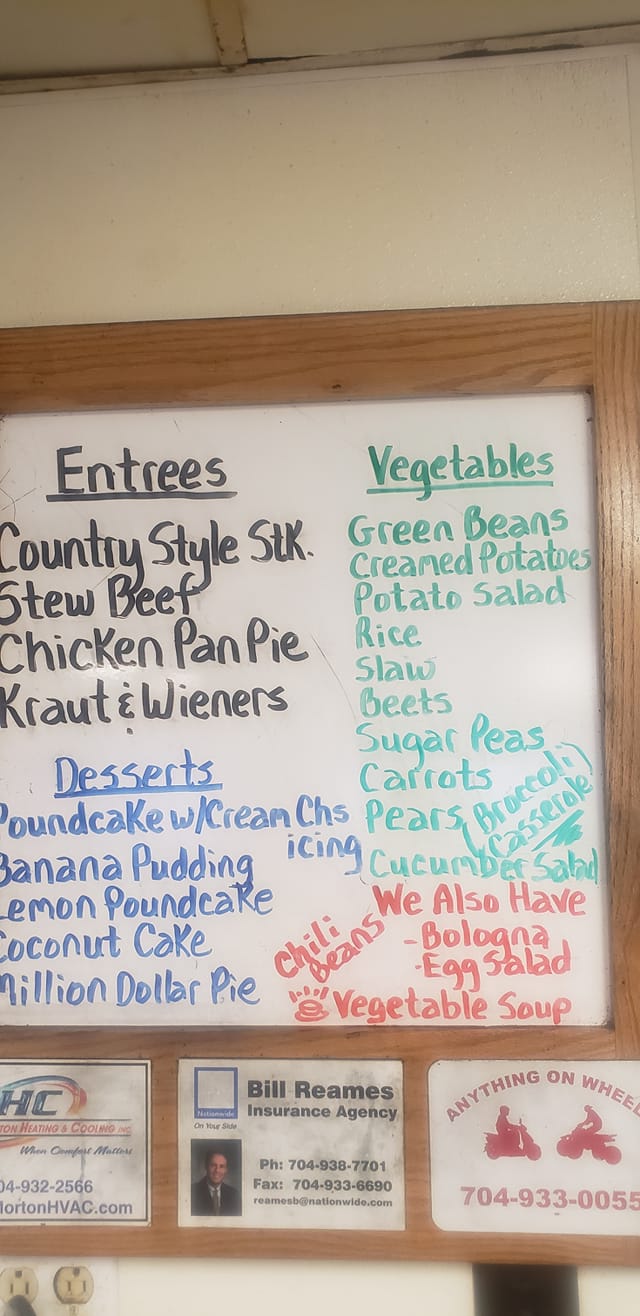 Entrees
Country Style Stk.
Stew Beef
Chicken Pan Pie
Kraut & Wieners
Desserts
Poundcake w/Cream Chs
icing
Banana Pudding
Lemon Poundcake
Coconut Cake
Million Dollar Pie
Vegetables
Green Beans
Creamed Potatoes
Potato Salad
Rice
Slaw
Beets
Sugar Peas
Carrots
Pears
(Broccoli)
Casserole
Cucumber Salad
We Also Have
- Bologna
- Egg Salad
Chili
Beans
Vegetable Soup
HC
TON HEATING & COOLING INC.
When Comfort Matters
04-932-2566
HortonHVAC.com
Nationwide
On Your Side
Bill Reames
Insurance Agency
Ph: 704-938-7701
Fax: 704-933-6690
reamesb@nationwide.com
ANYTHING ON WHEEL
704-933-0055